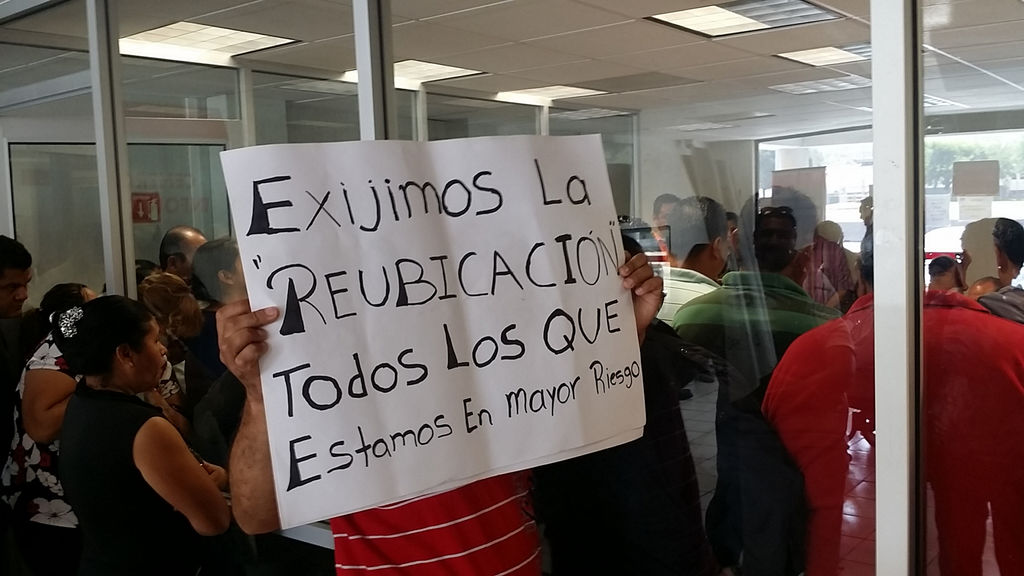 Exijimos La
"REUBICACIÓN"
Todos Los QUE
Estamos En mayor Riesgo